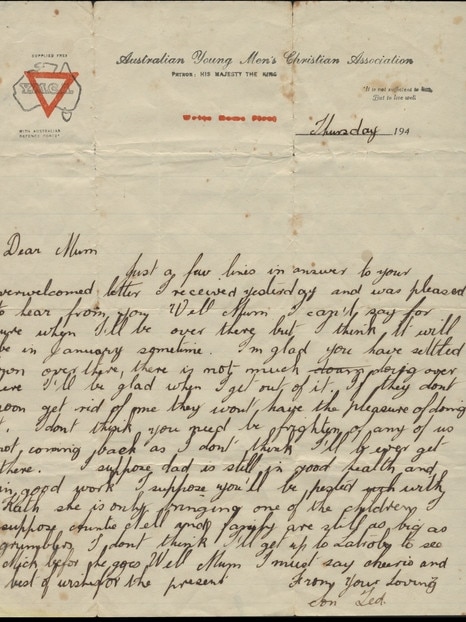 SUPPLIED FREE
Y.M.C.A.
WITH AUSTRALIAN
DEFENCE FORCES
Australian Young Men's Christian Association
PATRON: HIS MAJESTY THE KING
Write Home First
It is not sufficient to
But to live well
Thursday 194
Dear Mum
Just a few lines in answer to your
verwelcomed letter I received yesterday and was pleased
to hear from you Well Mum I can't say for
ure when I'll be over there but I think it will
be in January sometime. I'm glad you have settled
over there, there is not much doing over
ere I'll be glad when I get out of it, if they dont
soon get rid of me they wont have the pleasure of doing
I dont think you need be frighten of any of us
not coming back as I dont think I'll ever get
there. I suppose dad is still in good health and
in good work I suppose you'll be with
Kath she is only bringing one of the children I
suppose auntie and are still as big as
grumblers I dont think I'll get up to to see
before she goes Well Mum I must say cheerio and
best of for the present From Your Loving
Son Ted.